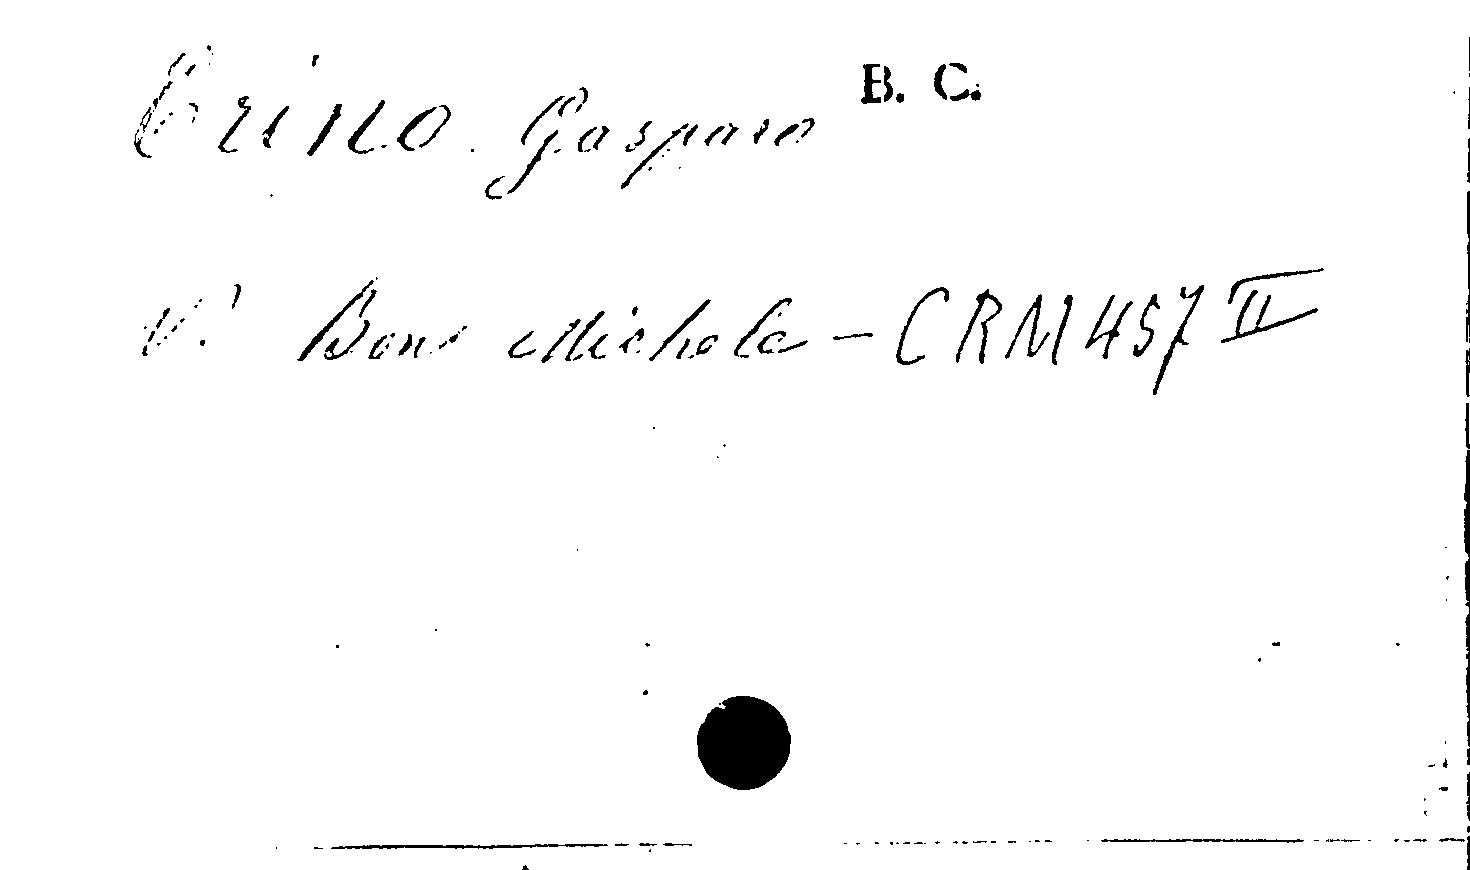 Erino Gasparo B. C.
V. Bono Michele - CRM 457 II